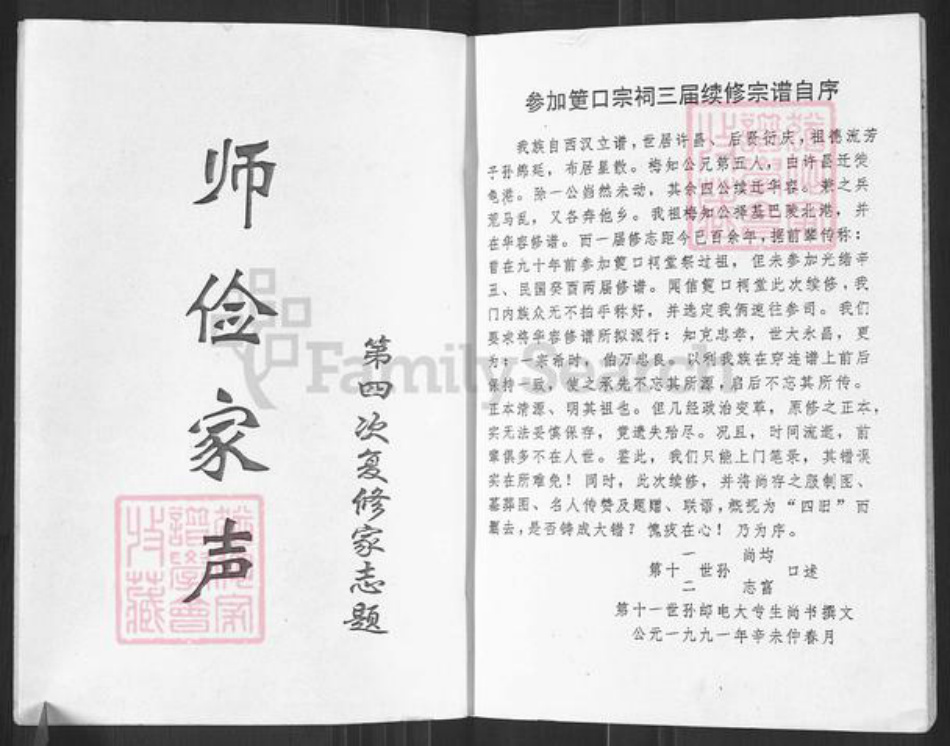 师俭家声
第四次复修家志题
参加筻口宗祠三届续修宗谱自序
我族自西汉立谱，世居许昌、后贤衍庆，祖德流芳
子孙绵延，布居星散。梅知公兄第五人，由许昌迁徙
龟港。除一公岿然未动，其余四公续迁华容。兼之兵
荒马乱，又各奔他乡。我祖梅知公择基巴陵北港，并
在华容修谱。而一届修志距今已百余年，据前辈传称：
曾在九十年前参加筻口祠堂祭过祖，但未参加光绪辛
丑、民国癸酉两届修谱。闻信筻口祠堂此次续修，我
门内族众无不拍手称好，并选定我俩速往参司。我们
要求将华容修谱所拟派行：知克忠孝，世大永昌，更
为：一宗希时，伯万忠良。以利我族在穿连谱上前后
保持一致，使之承先不忘其所源，启后不忘其所传。
正本清源、明其祖也。但几经政治变革，原修之正本，
实无法妥慎保存，竟遗失殆尽。况且，时间流逝，前
辈俱多不在人世。鉴此，我们只能上门笔录，其错误
实在所难免！同时，此次续修，并将尚存之服制图、
墓葬图、名人传赞及题赠、联语，概视为“四旧”而
删去，是否铸成大错？愧疚在心！乃为序。
第十一世孙 尚均
第十二世孙 志富 口述
第十一世孙邮电大专生尚书撰文
公元一九九一年辛未仲春月
FamilySearch